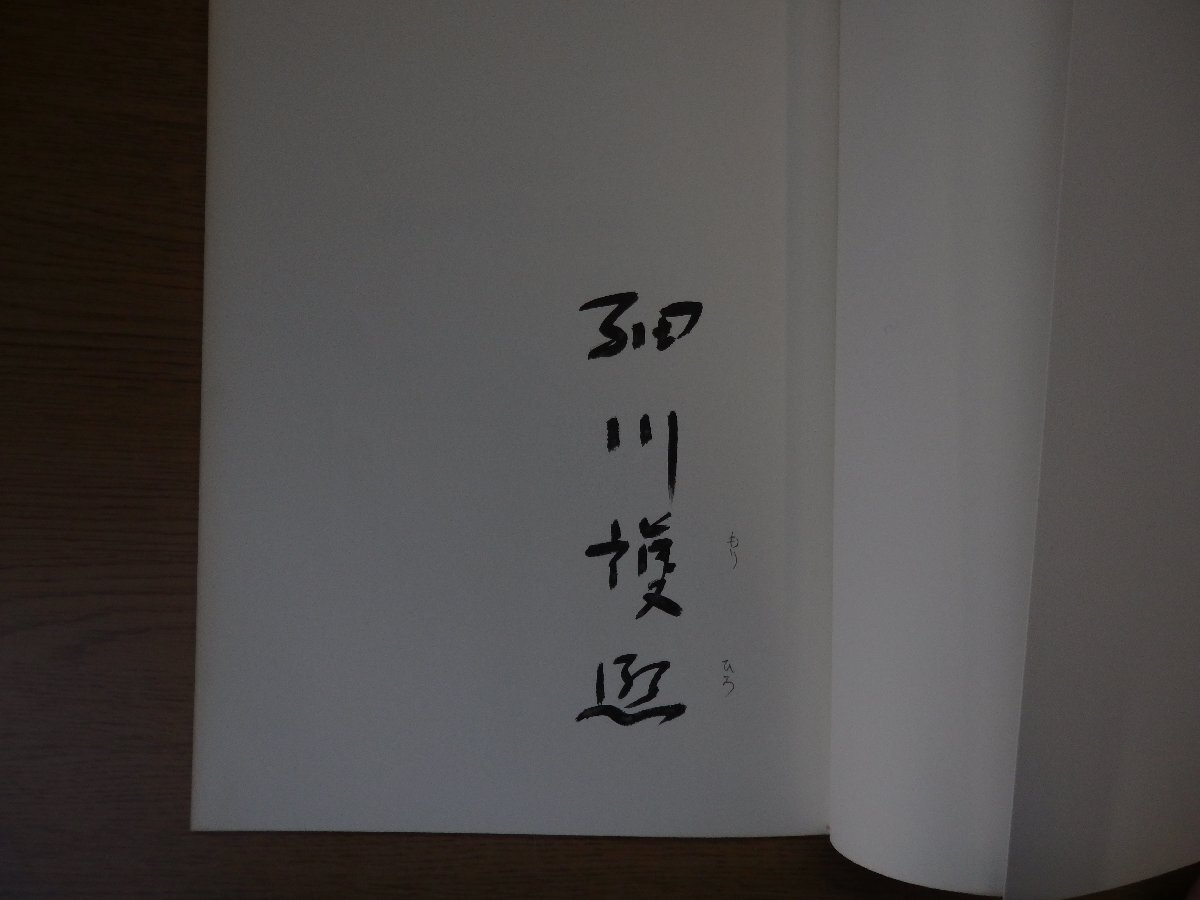 細川護熙
もり
ひろ